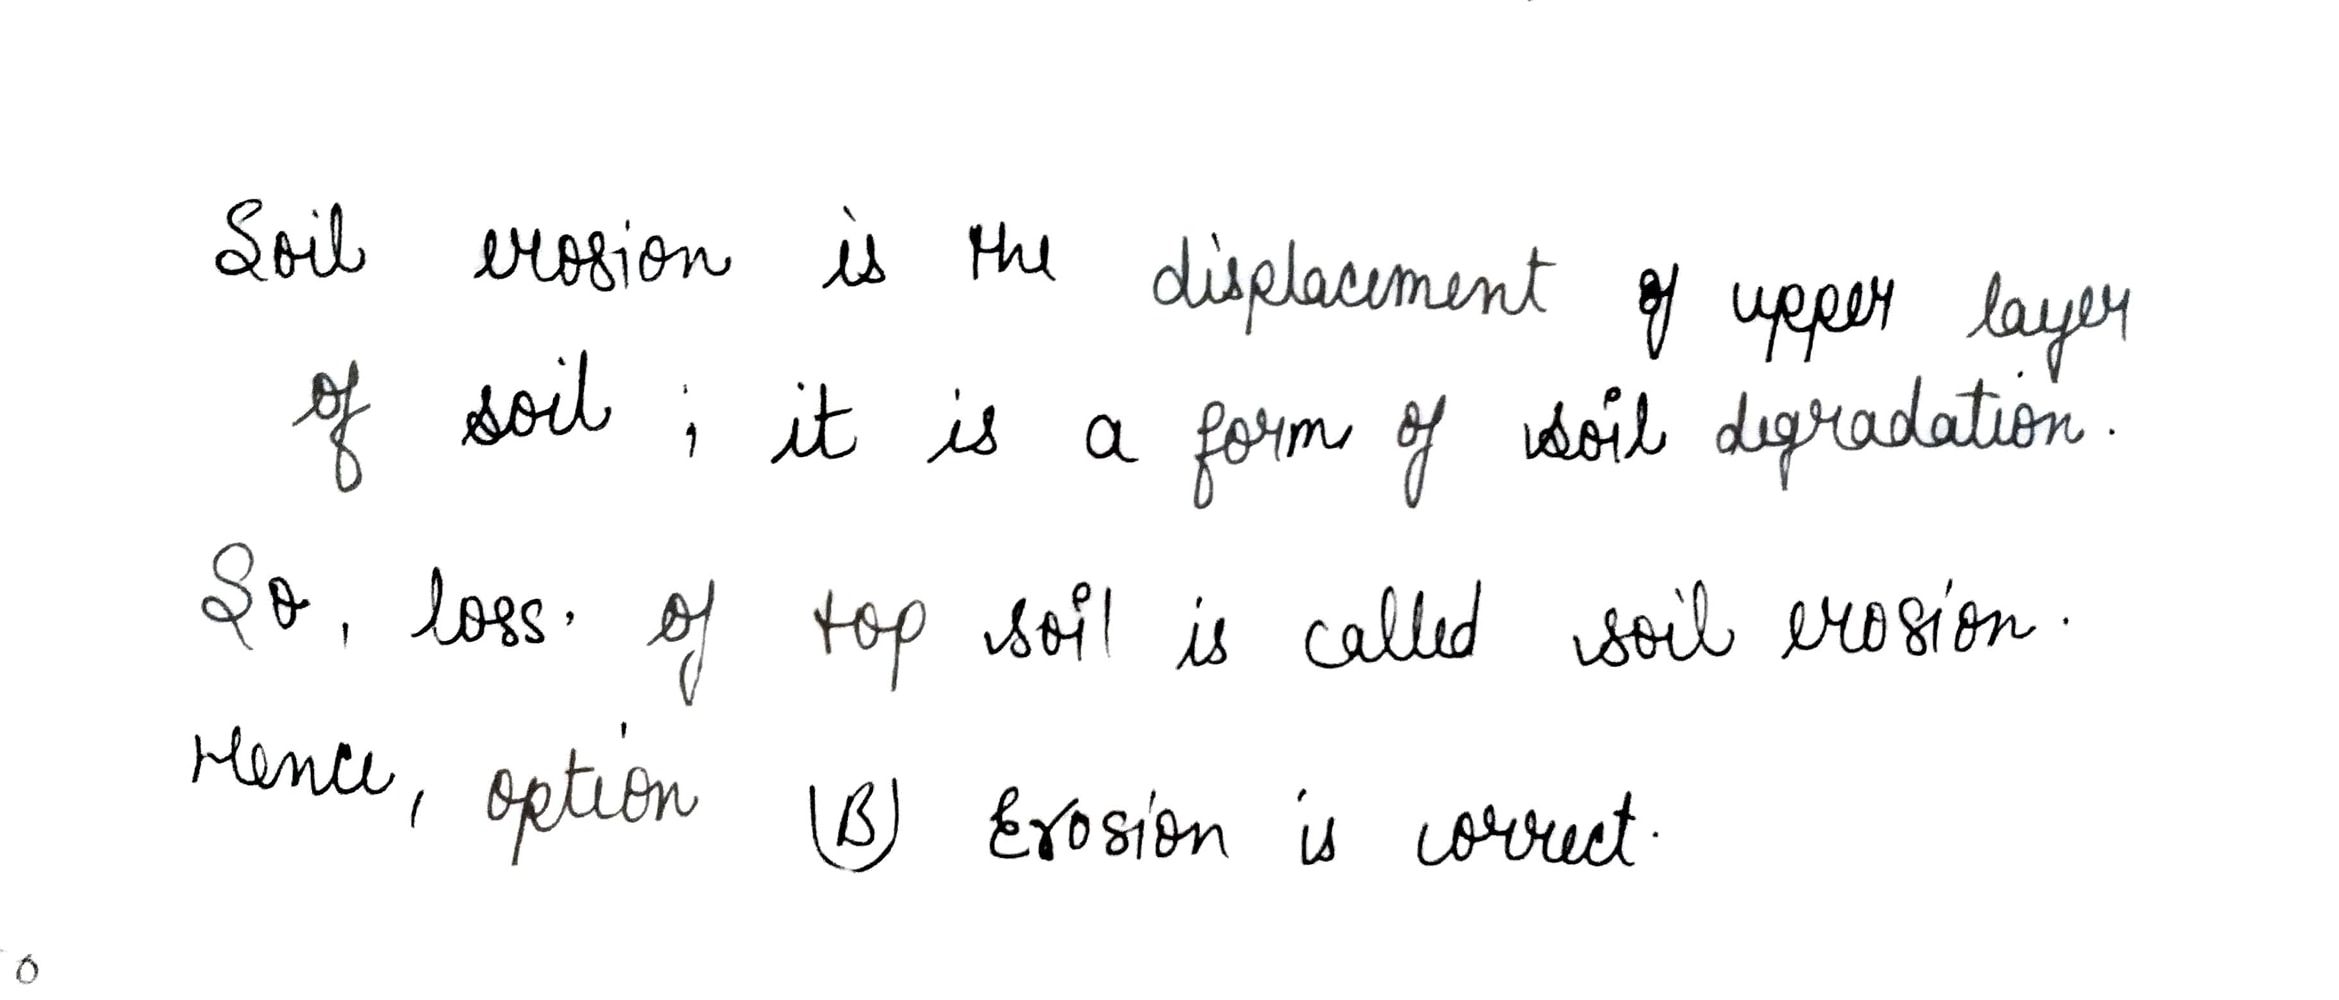 Soil erosion is the displacement of upper layer
of soil ; it is a form of soil degradation.
So, loss. of top soil is called soil erosion.
Hence, option (B) Erosion is correct.